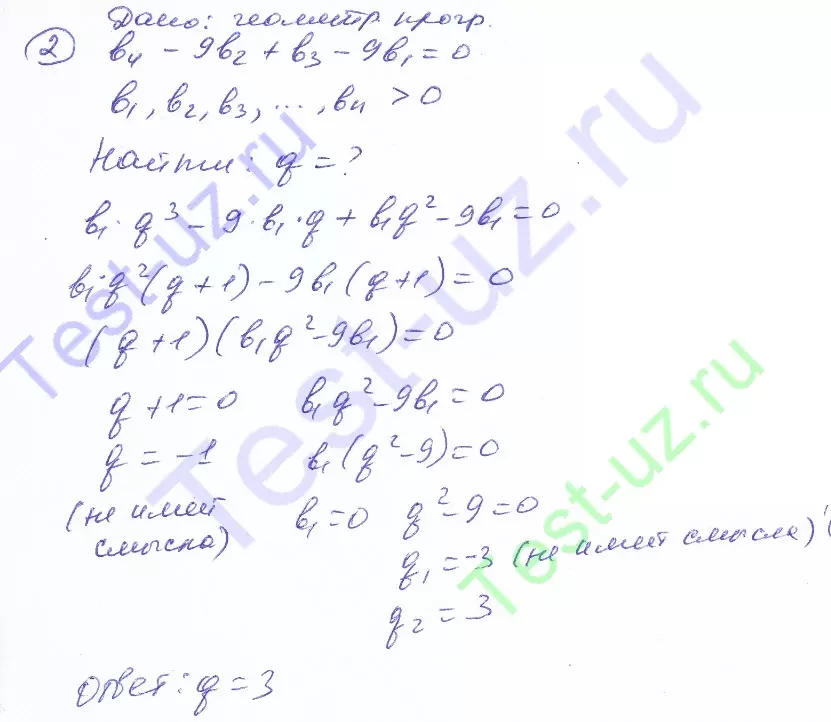 Дано: геометр прогр.
2 b₄ - 9b₂ + b₃ - 9b₁ = 0
b₁, b₂, b₃, ..., b₄ > 0
Найти: q = ?
b₁·q³ - 9·b₁·q + b₁q² - 9b₁ = 0
b₁·q²(q+1) - 9b₁(q+1) = 0
(q+1)(b₁q² - 9b₁) = 0
q+1=0 b₁q² - 9b₁ = 0
q = -1 b₁(q²-9) = 0
(не имеет смысла) b₁=0 q²-9=0
q₁ = -3 (не имеет смысла)
q₂ = 3
Ответ: q = 3
Test-uz.ru
Test-uz.ru
Test-uz.ru